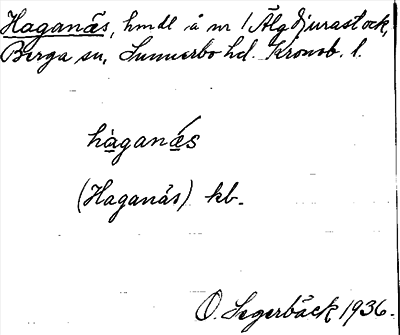 Haganäs, hmdl å nr 1 Älgdjurastock,
Berga sn, Sunnerbo hd. Kronob. l.
hàganä́s
(Haganäs) kb.
O. Segerbäck 1936.